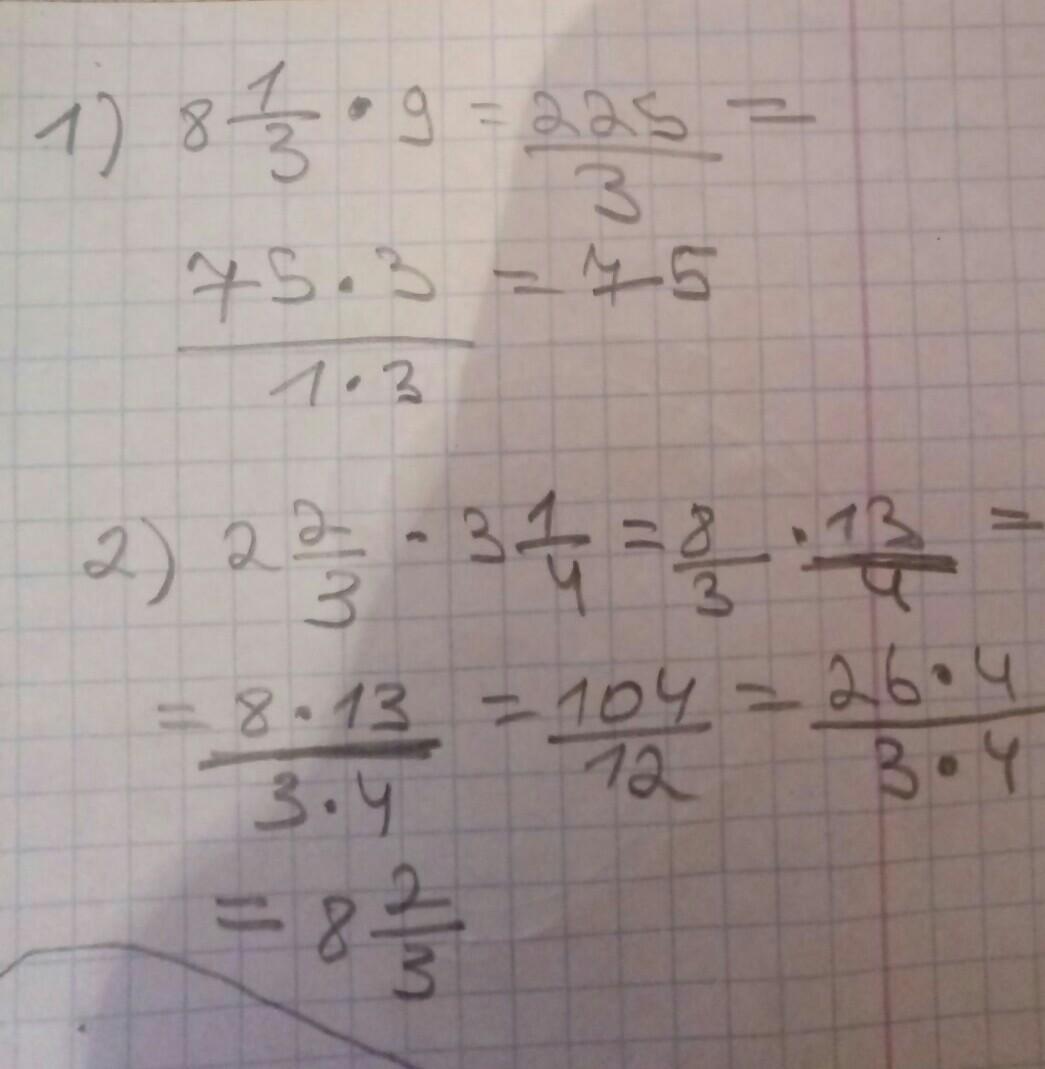 1) 8 1/3 · 9 = 225/3 =
75·3/1·3 = 75
2) 2 2/3 · 3 1/4 = 8/3 · 13/4 =
= 8·13/3·4 = 104/12 = 26·4/3·4
= 8 2/3